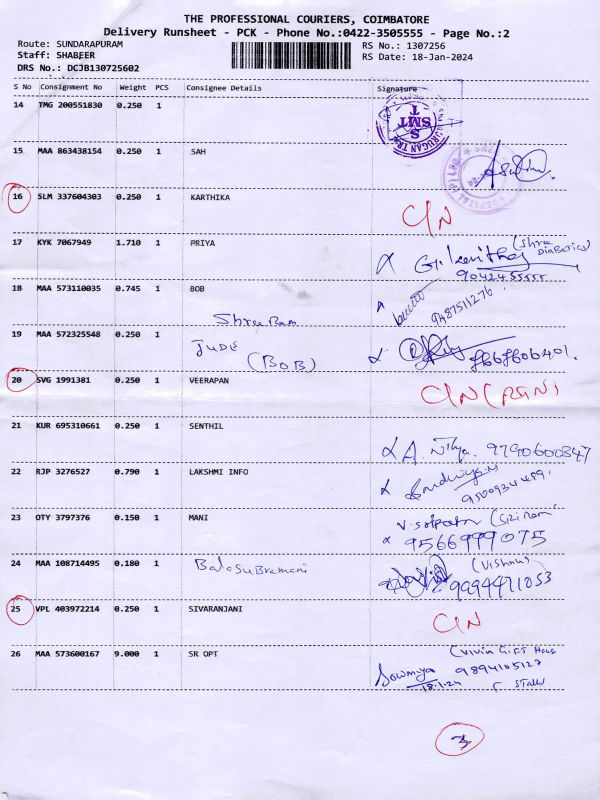 THE PROFESSIONAL COURIERS, COIMBATORE
Delivery Runsheet - PCK - Phone No.:0422-3505555 - Page No.:2
Route: SUNDARAPURAM RS No.: 1307256
Staff: SHABEER RS Date: 18-Jan-2024
DRS No.: DCJB130725602
S No Consignment No Weight PCS Consignee Details Signature
14 TMG 200551830 0.250 1 SMT
15 MAA 863438154 0.250 1 SAH
16 SLM 337604303 0.250 1 KARTHIKA C/N
17 KYK 7067949 1.710 1 PRIYA (Shree Diabetics) 9042455555
18 MAA 573110035 0.745 1 BOB 9487511276
Shree Ram
19 MAA 572325548 0.250 1 JUDE (BOB)
20 SVG 1991381 0.250 1 VEERAPAN C/N
21 KUR 695310661 0.250 1 SENTHIL A. Nithya. 9790600847
22 RJP 3276527 0.790 1 LAKSHMI INFO
23 OTY 3797376 0.150 1 MANI 9566999075
24 MAA 108714495 0.180 1 Balasubramani (Vishnu) 9994471053
25 VPL 403972214 0.250 1 SIVARANJANI C/N
26 MAA 573600167 9.000 1 SR OPT Sowmiya 18.1.24 9894105127
3